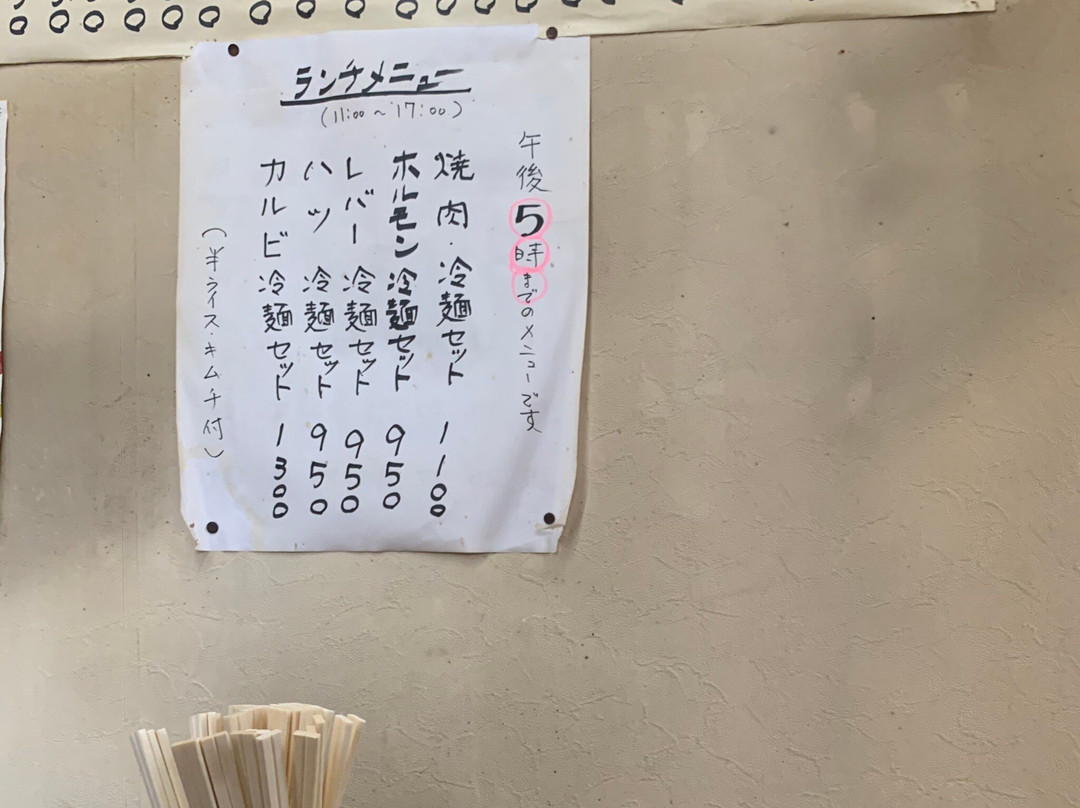 ランチメニュー
(11:00～17:00)
午後5時までのメニューです
焼肉・冷麺セット 1100
ホルモン冷麺セット 950
レバー冷麺セット 950
ハツ冷麺セット 950
カルビ冷麺セット 1300
(半ライス・キムチ付)